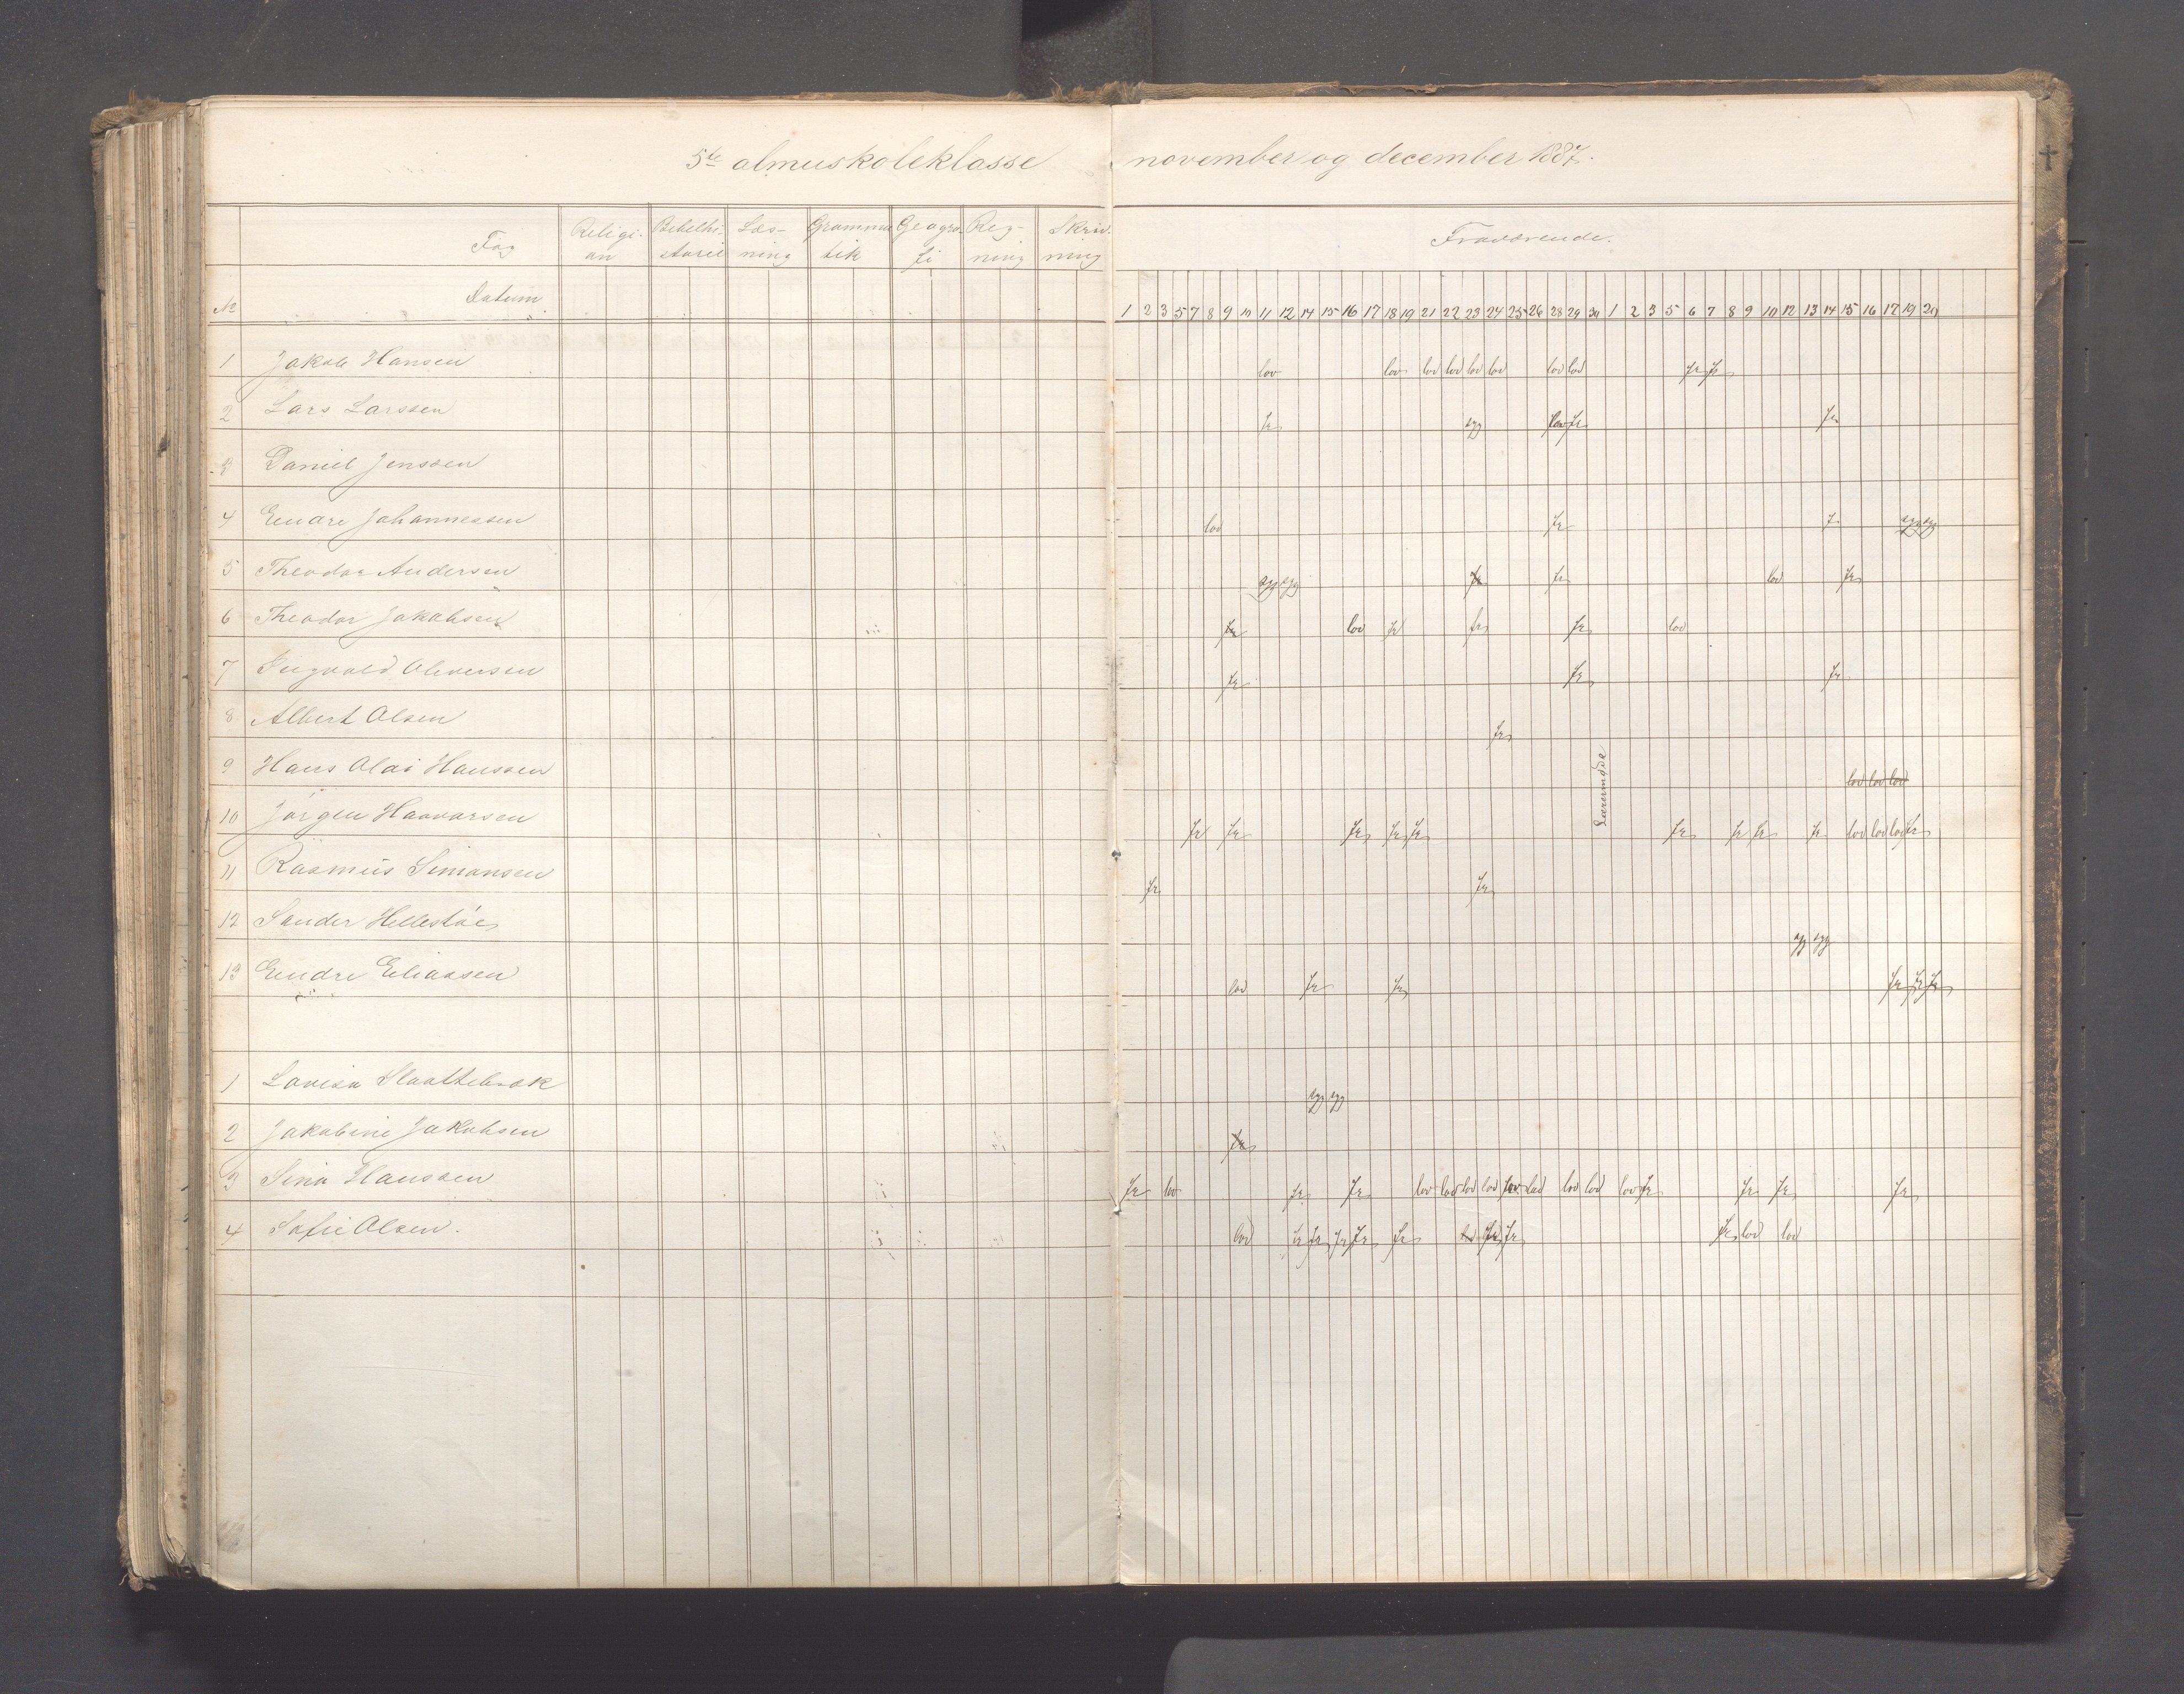 5te almuskoleklasse november og december 1887.
Fag Religi- Bibelhi- Læs- Gramma Geogra- Reg- Skriv-
on storie ning tik fi ning ning Fraværende.
No Datum 1 2 3 5 7 8 9 10 11 12 14 15 16 17 18 19 21 22 23 24 25 26 28 29 30 1 2 3 5 6 7 8 9 10 12 13 14 15 16 17 19 20
1 Jakob Hansen lov lov lov lov lov lov lov lov fr fr
2 Lars Larssen fr syg fr fr
3 Daniel Jenssen
4 Endre Johannessen lov fr f syg syg
5 Theodor Andersen syg syg fr fr lov fr
6 Theodor Jakobsen fr lov fr fr fr lov
7 Ingvald Oliversen fr fr fr
8 Albert Olsen fr
9 Hans Olai Hanssen lov lov lov
Lærermøde
10 Jørgen Haavarsen fr fr fr fr fr fr fr fr fr lov lov lov fr
11 Rasmus Simonsen fr fr
12 Sander Hellestöe syg syg
13 Endre Eliassen lov fr fr fr fr fr
1 Lovisa Slaattebrok syg syg
2 Jakobine Jakobsen fr
3 Sina Hanssen fr lov fr fr lov lov lov lov lov lov lov lov fr fr fr fr
4 Sofie Olsen. lov fr fr fr fr fr lov fr fr fr lov lov